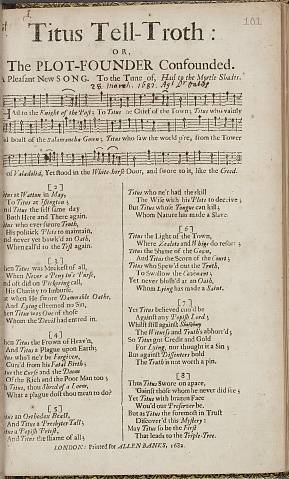 101
Titus Tell-Troth:
OR,
The PLOT-FOUNDER Confounded.
A Pleasant New SONG. To the Tune of, Hail to the Myrtle Shades.
28. March. 1682.
Hail to the Knight of the Post; To Titus the Chief of the Town; Titus who vainly
did boast of the Salamancha Gown; Titus who saw the world pre, from the Tower
of Valadolid, Yet stood in the White-horse Door, and swore to it, like the Creed.
[2]
Titus at Watton in May,
To Titus at Islington;
And Titus the self same day
Both Here and There again.
Titus who never swore Truth,
His politick Plots to maintain,
And never yet bawk'd an Oath,
When call'd to his Test again.
[3]
Then Titus was Meekest of all,
When Never a Peny in's Purse,
And oft did on Pickering call,
His Charity to Imburse,
But when He swore Damnable Oathe,
And Lying esteemed no Sin,
Then Titus was One of those
Whom the Devil had entred in.
[4]
Then Titus the Frown of Heav'n,
And Titus a Plague upon Earth;
Titus who'l ne'r be Forgiven,
Curs'd from his Fatal Birth;
Titus the Curse and the Doom
Of the Rich and the Poor Man too;
Oh Titus, thou Shred of a Loom,
What a plague dost thou mean to do?
[5]
Titus an Orthodox Beast,
And Titus a Presbyter Tall;
Titus a Popish Priest,
And Titus the shame of all;
Titus who ne'r had the skill
The Wife with his Plots to deceive;
But Titus whose Tongue can kill;
Whom Nature has made a Slave.
[6]
Titus the Light of the Town,
Where Zealots and Whigs do resort;
Titus the Shame of the Gown,
And Titus the Scorn of the Court;
Titus who Spew'd out the Truth,
To Swallow the Covenant;
Yet never blush'd at an Oath,
Whom Lying has made a Saint.
[7]
Yet Titus believed cou'd be
Against any Popish Lord;
Whilst still against
The Witness and Truth's abhorr'd;
So Titus got Credit and Gold
For Lying, nor thought it a Sin;
But against Dissenters bold
The Truth is not worth a pin.
[8]
Thus Titus Swore on apace,
'Gainst those whom he never did see;
Yet Titus with brazen Face
Wou'd our Preserver be.
But as Titus the foremost in Trust
Discover'd this Mystery:
May Titus be the First
That leads to the Triple-Tree.
LONDON: Printed for ALLEN BANKS, 1682.